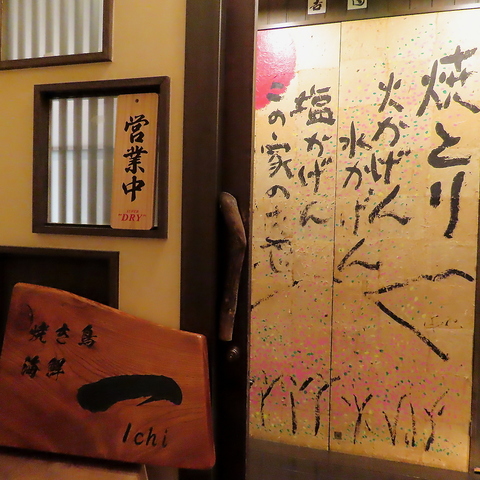 営業中
"DRY"
焼き鳥
海鮮
一
Ichi
焼とり
火かげん
水かげん
塩かげん
この家の